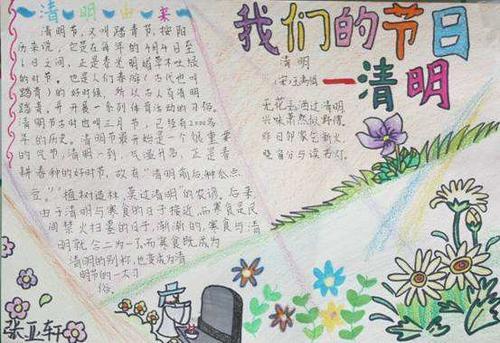 清明由来
清明节，又叫踏青节，按阳
历来说，它是在每年的4月4日至
6日之间，正是春光明媚草木吐绿
的时节，也是人们春游（古代也叫
踏青）的好时候，所以古人有清明
踏青，并开展一系列体育活动的习俗。
清明节古时也叫三月节，已经有2000多
年的历史。清明节最开始是一个很重要
的节气，清明一到，气温升高，正是春
耕春种的好时节，故有“清明前后，种瓜点
豆。”“植树造林，莫过清明”的农谚。后来，
由于清明与寒食的日子接近，而寒食是民
间禁火扫墓的日子，渐渐的，寒食与清
明就合二为一了，而寒食既成为
清明的别称，也变成为清
明节的一大习
俗。
我们的节日
—清明
清明
无花无酒过清明
兴味萧然似野僧
昨日邻家乞新火，
晓窗分与读书灯。
张亚轩